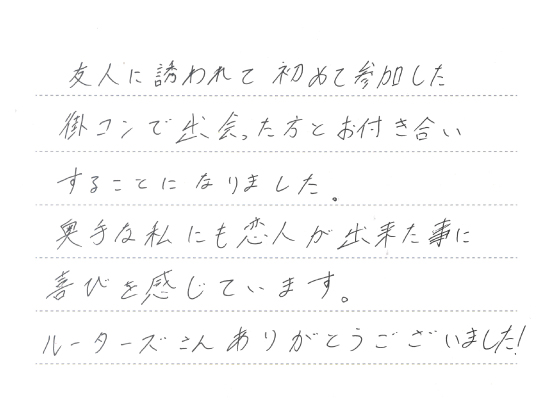 友人に誘われて初めて参加した
街コンで出会った方とお付き合い
することになりました。
奥手な私にも恋人が出来た事に
喜びを感じています。
ルーターズさんありがとうございました!